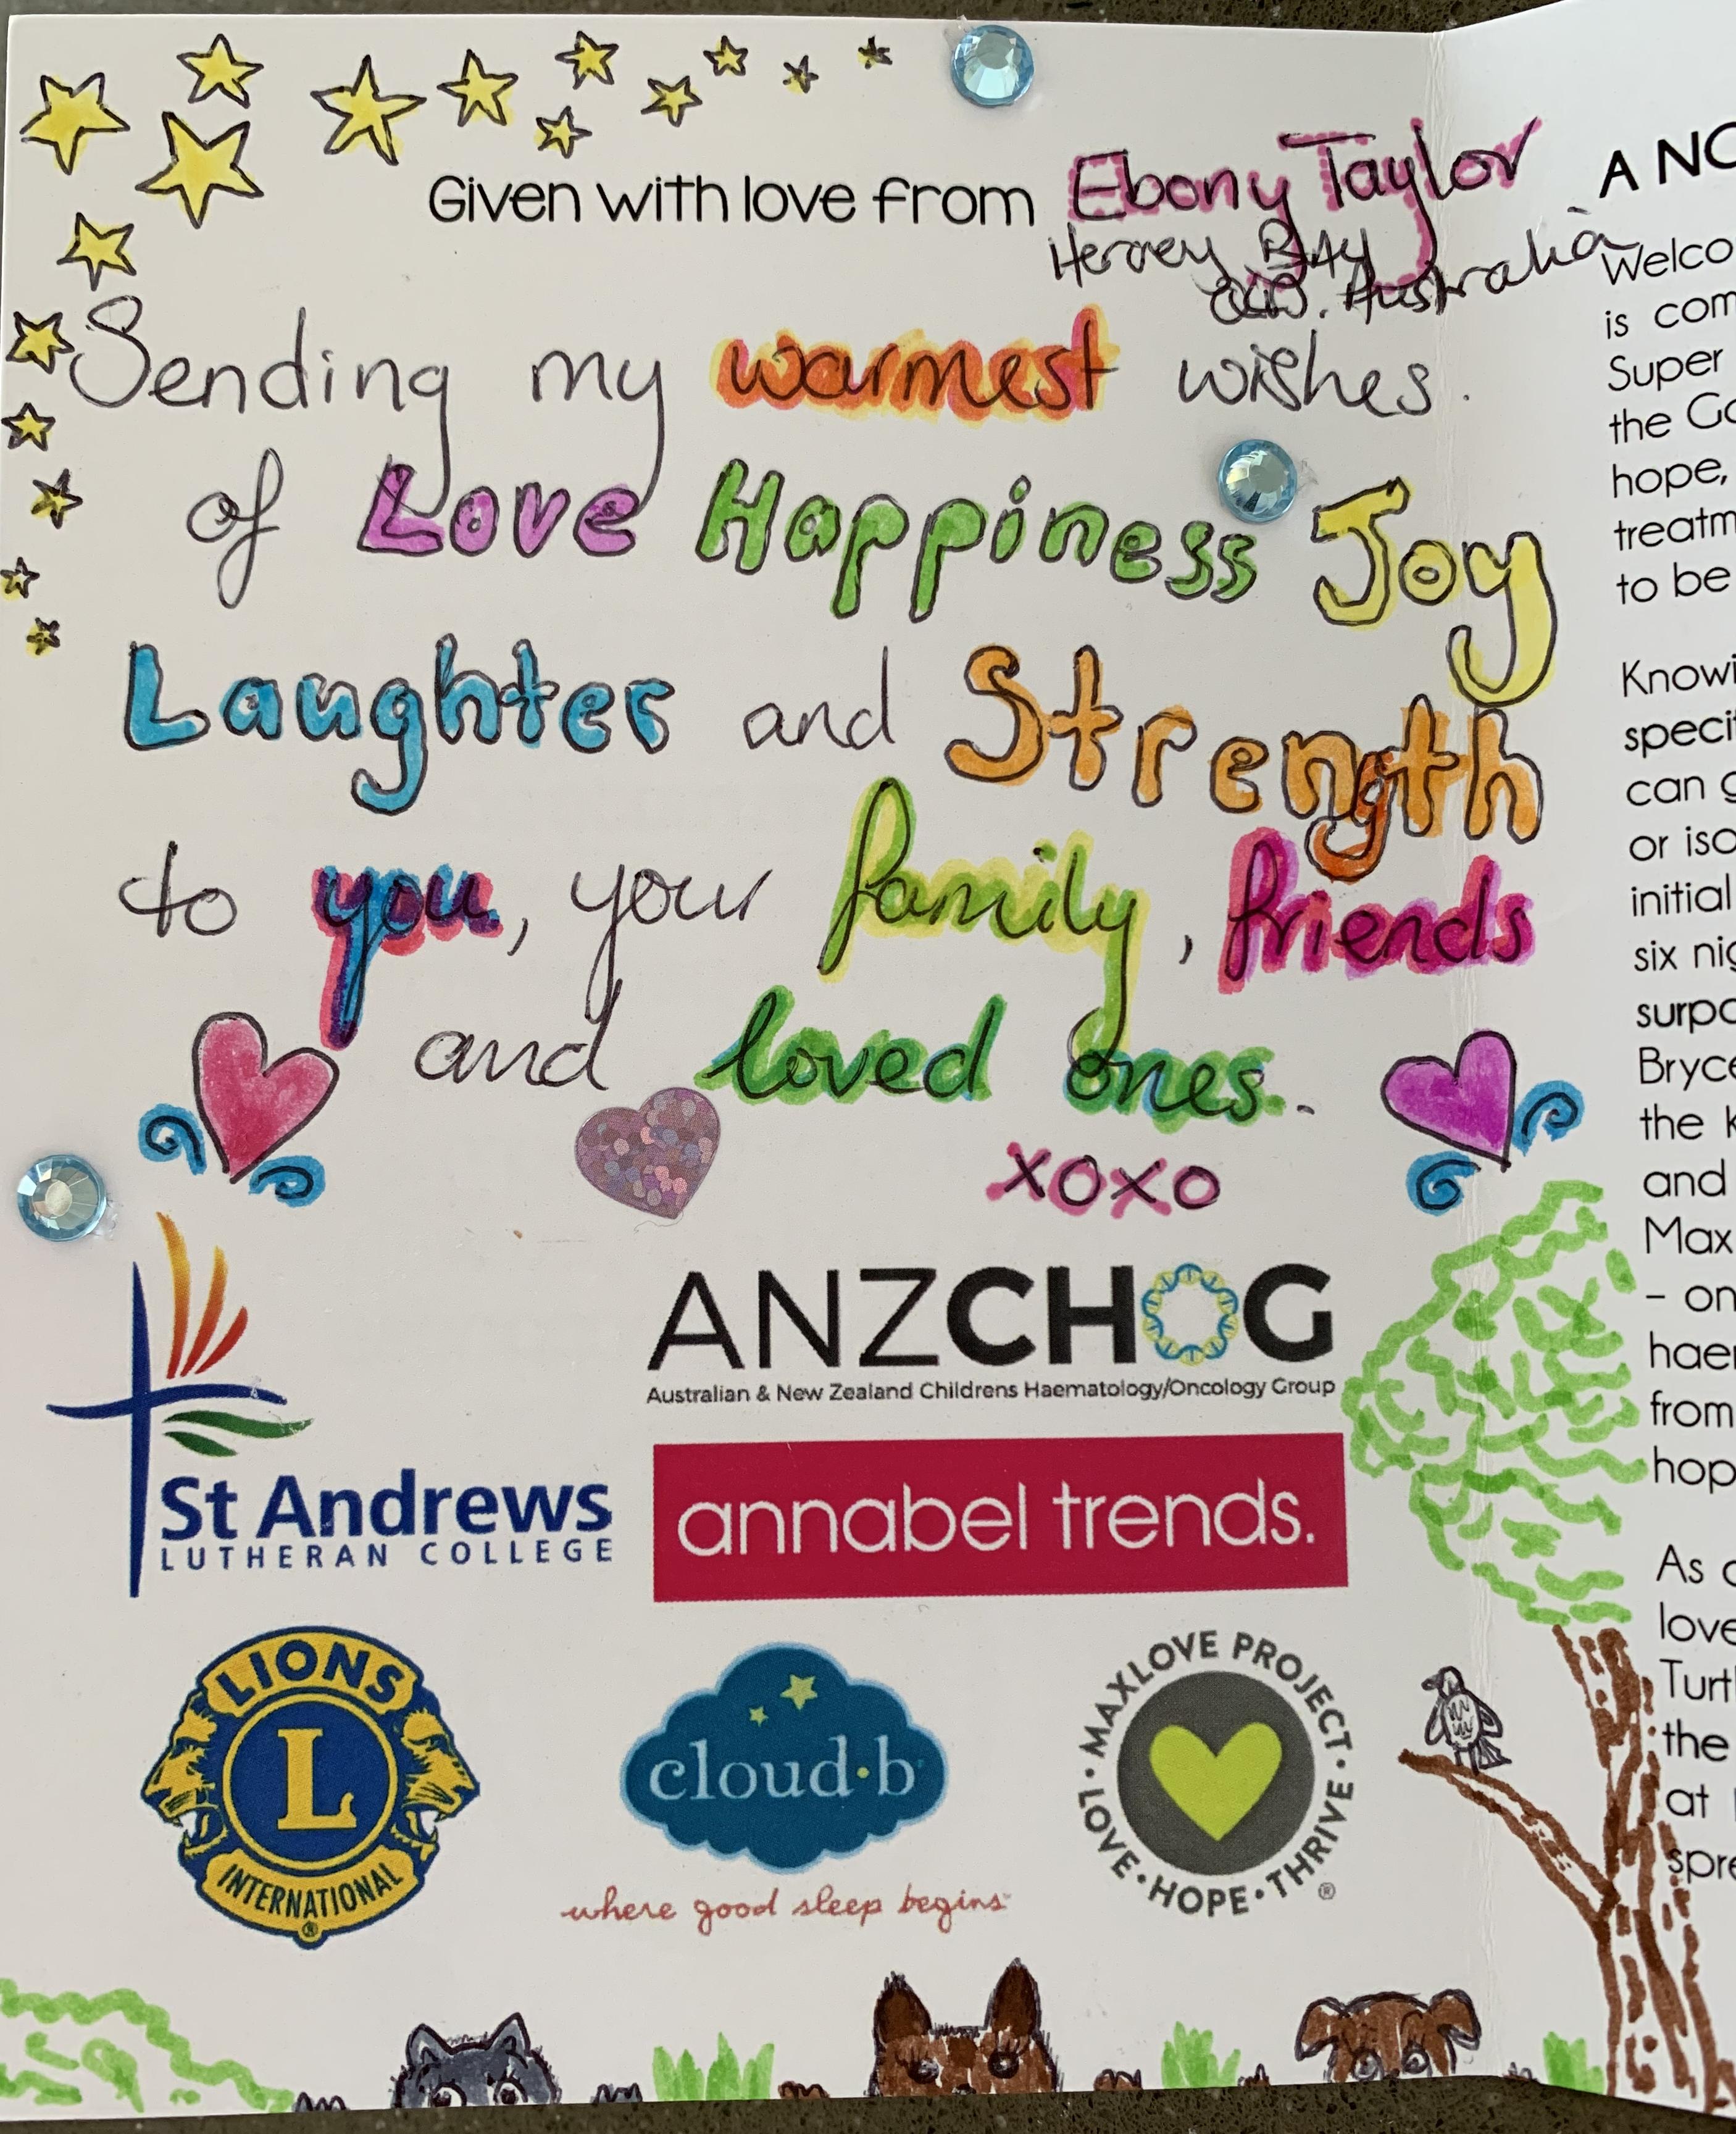 Given with love from Ebony Taylor
Hervey Bay
QLD. Australia
Sending my warmest wishes.
of Love Happiness Joy
Laughter and Strength
to you, your family, friends
and loved ones.
xoxo
ANZCHOG
Australian & New Zealand Childrens Haematology/Oncology Group
St Andrews
LUTHERAN COLLEGE
annabel trends.
LIONS
L
INTERNATIONAL
®
cloud·b
where good sleep begins
MAXLOVE PROJECT · LOVE · HOPE · THRIVE ·
®
A NO
Welco
is com
Super
the Go
hope,
treatm
to be
Knowi
specif
can g
or iso
initial
six nig
surpo
Bryce
the K
and
Max
- on
haer
from
hop
As c
love
Turt
the
at
spre